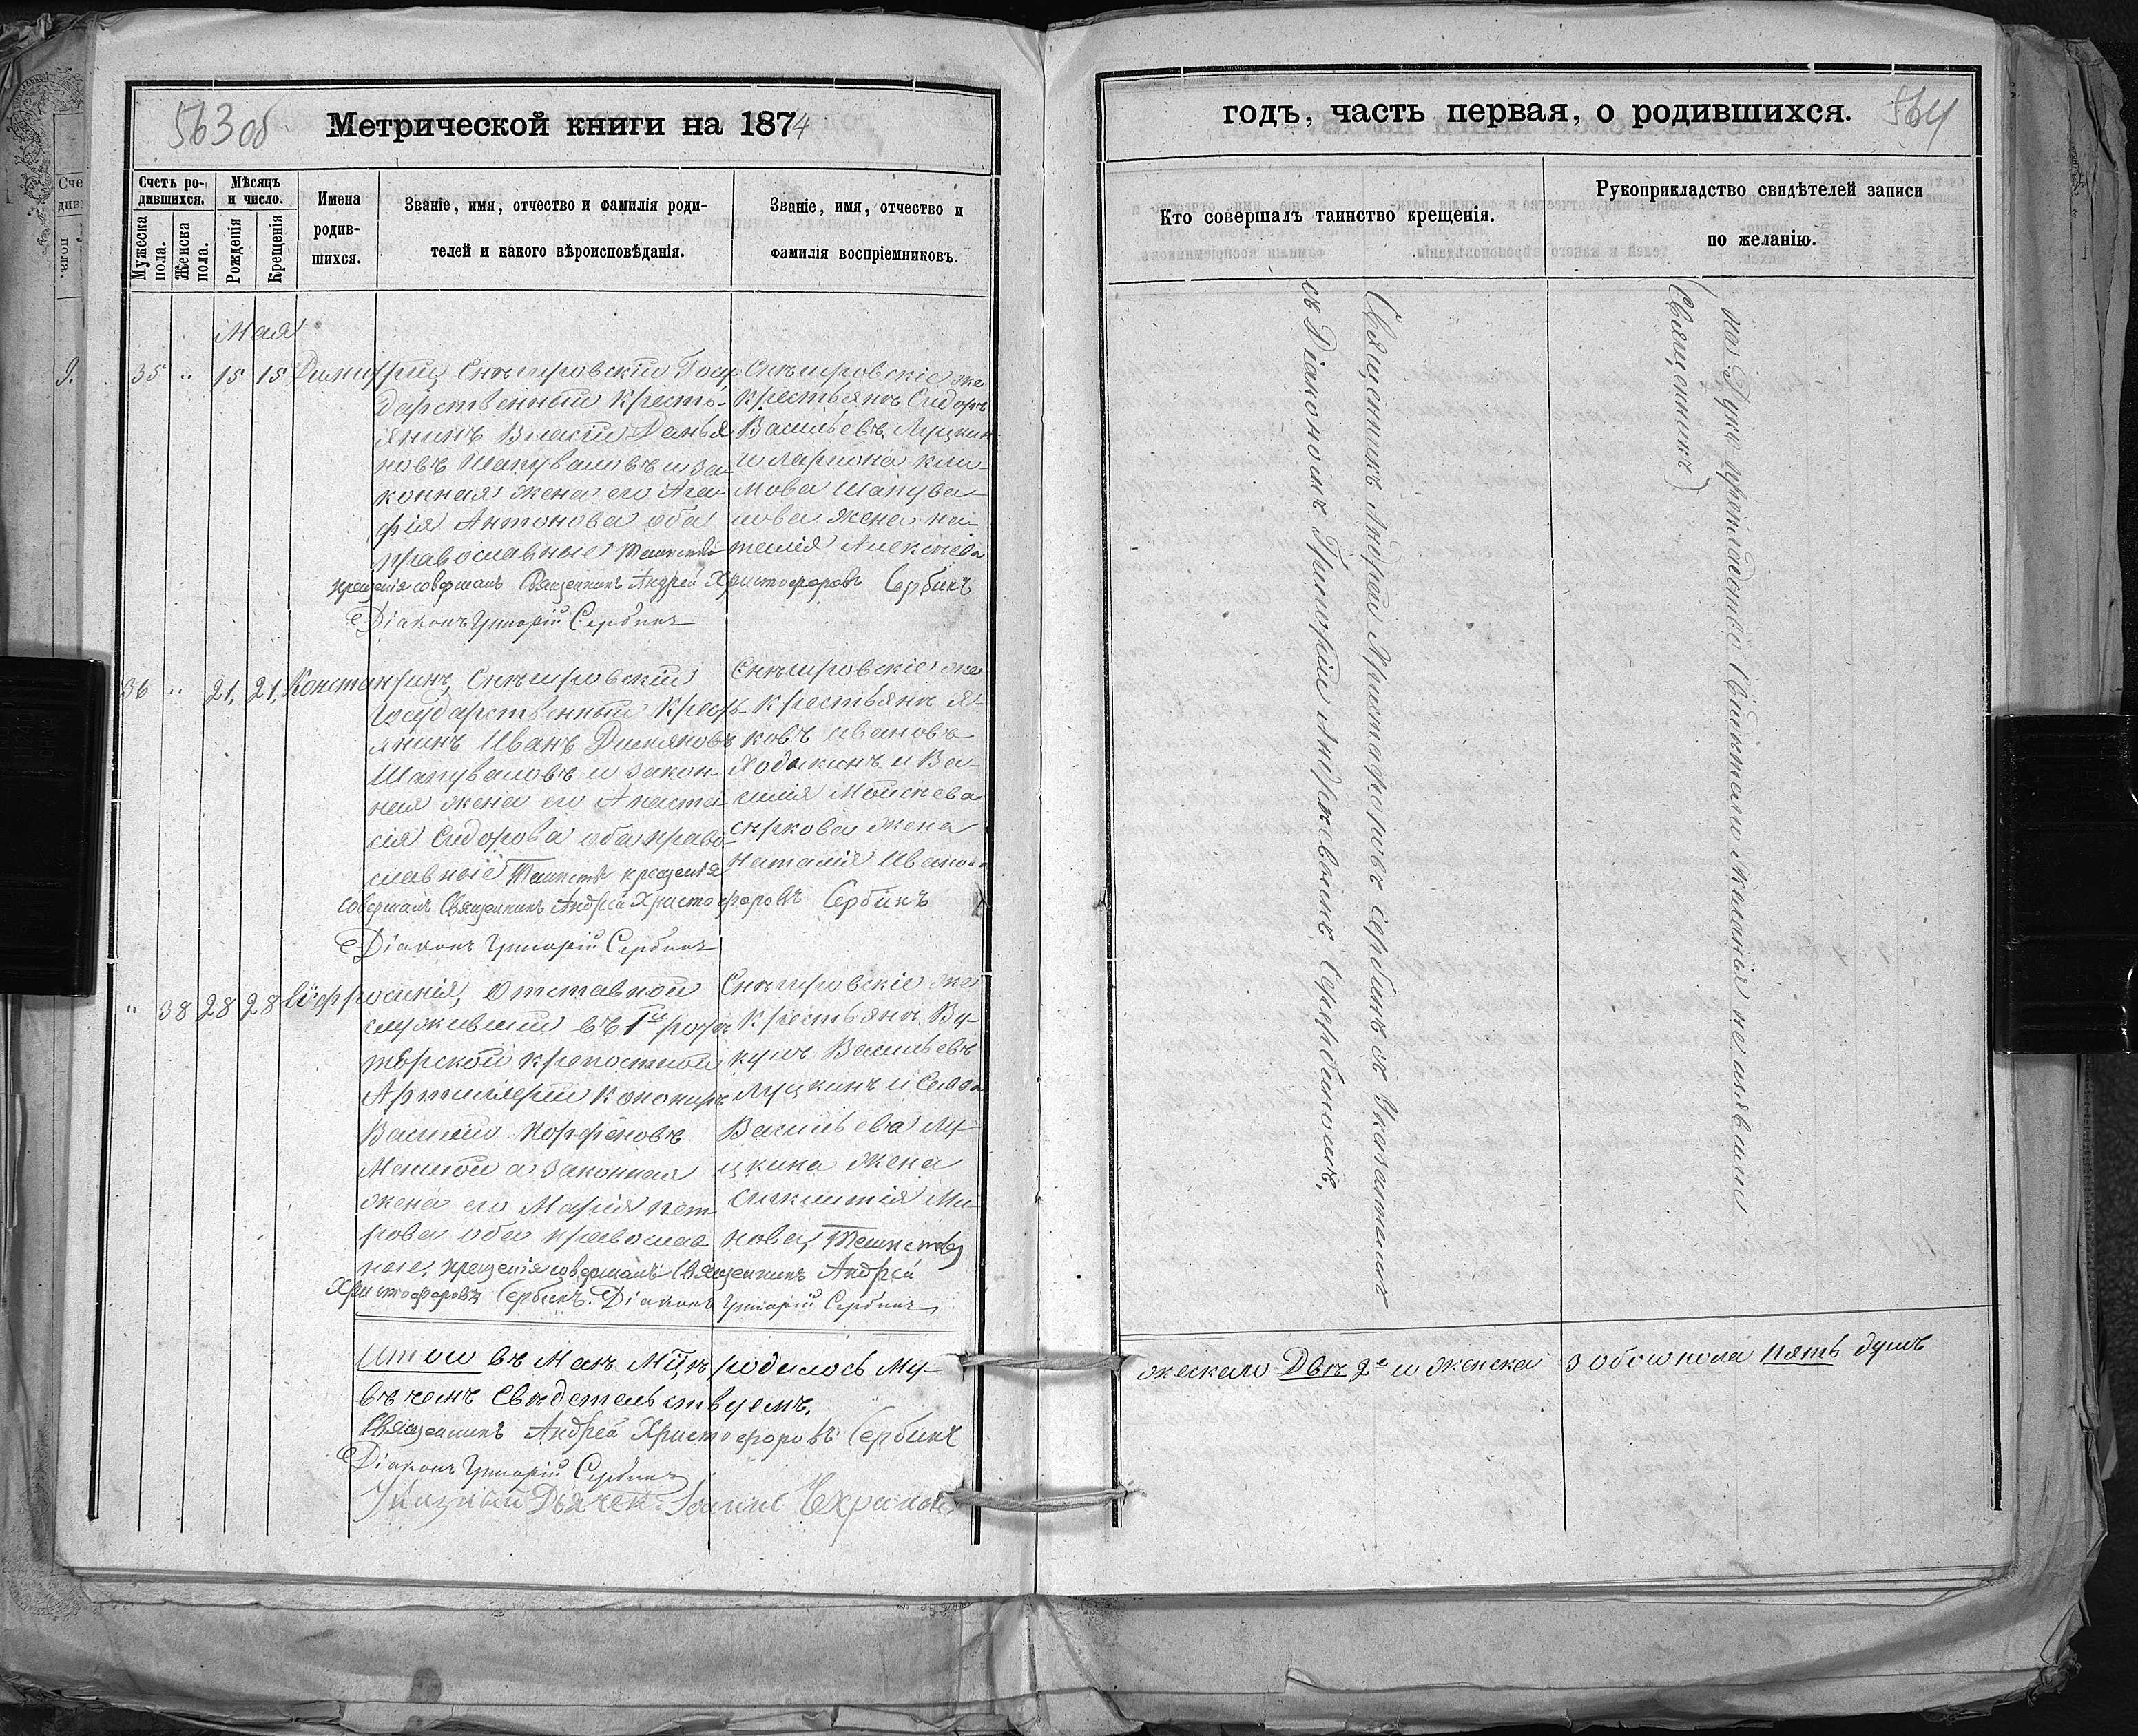 563об
Метрической книги на 1874
Счетъ ро-
дившихся.
Мѣсяцъ
и число.
Мужеска
пола.
Женска
пола.
Рожденія
Крещенія
Имена
родив-
шихся.
Званіе, имя, отчество и фамилія роди-
телей и какого вѣроисповѣданія.
Званіе, имя, отчество и
фамилія воспріемниковъ.
Мая
35 " 15 15 Димитрій,
Снѣгировскій Госу-
дарственный Кресть-
янинъ Власій
новъ Шапуваловъ и за-
конная жена его Ага-
фія Антонова оба
православные Таинство
крещенія совершалъ Священникъ Андрей Христофоровъ Сербинъ
Діаконъ Григорій Сербинъ
Снѣгировскіе же
Крестьяне Сидоръ
Васильевъ Луцкин
и Ларіона Кли-
мова Шапува-
лова жена На-
талія Алексѣева
36 " 21, 21, Константинъ,
Снѣгировскій
Государственный Кресть-
янинъ Иванъ
Шапуваловъ и закон-
ная жена его Анаста-
сія Сидорова оба право-
славные Таинство крещенія
совершалъ Священникъ Андрей Христофоровъ Сербинъ
Діаконъ Григорій Сербинъ
Снѣгировскіе же
крестьяне Я-
ковъ Ивановъ
Ходыкинъ и Ва-
силія Моисеева
жена
Наталія Иванова
" 38 28 28 Евфросинія,
Отставной
служившій въ 1й ротѣ
крепостной
Артиллеріи Канониръ
Василій Порфеновъ
а законная
жена его Марія Пет-
рова оба православ-
ные, крещенія совершалъ Священникъ Андрей
Христофоровъ Сербинъ. Діаконъ Григорій Сербинъ
Снѣгировскіе же
Крестьяне Ву-
кулъ Васильевъ
Луцкинъ и Савва
Васильева Лу-
цкина жена
Ми-
нова, Таинство
Итого въ Маѣ М-цѣ родилось му-
въ чемъ Свѣдетельствуемъ.
Священникъ Андрей Христофоровъ Сербинъ
Діаконъ Григорій Сербинъ
Указный Дьячекъ
годъ, часть первая, о родившихся.
564
Кто совершалъ таинство крещенія.
Рукоприкладство свидѣтелей записи
по желанію.
Священникъ Андрей Христофоровъ Сербинъ съ Указателемъ
съ Діакономъ Григоріемъ Андреевымъ Сербиномъ.
на Руко прикладство Свидѣтели желанія не изъявили
(Священникъ)
жескаго Двѣ 2е и женска 3 обоего пола пять душъ